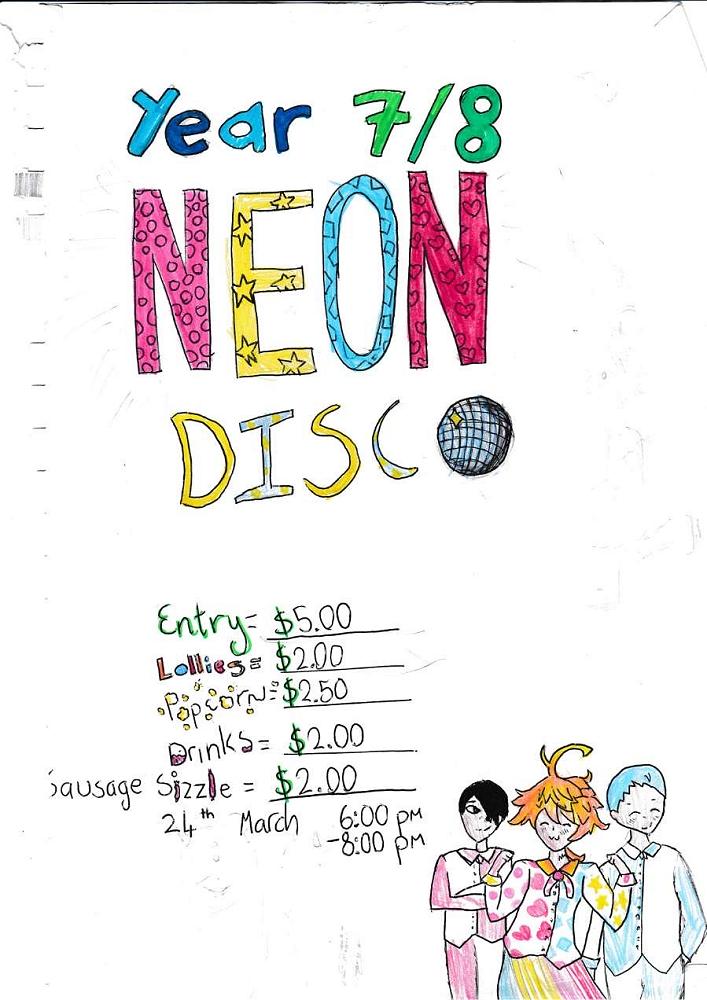 Year 7/8
NEON
DISCO
Entry= $5.00
Lollies= $2.00
Popcorn= $2.50
Drinks= $2.00
Sausage Sizzle = $2.00
24th March 6:00 pm
-8:00 pm